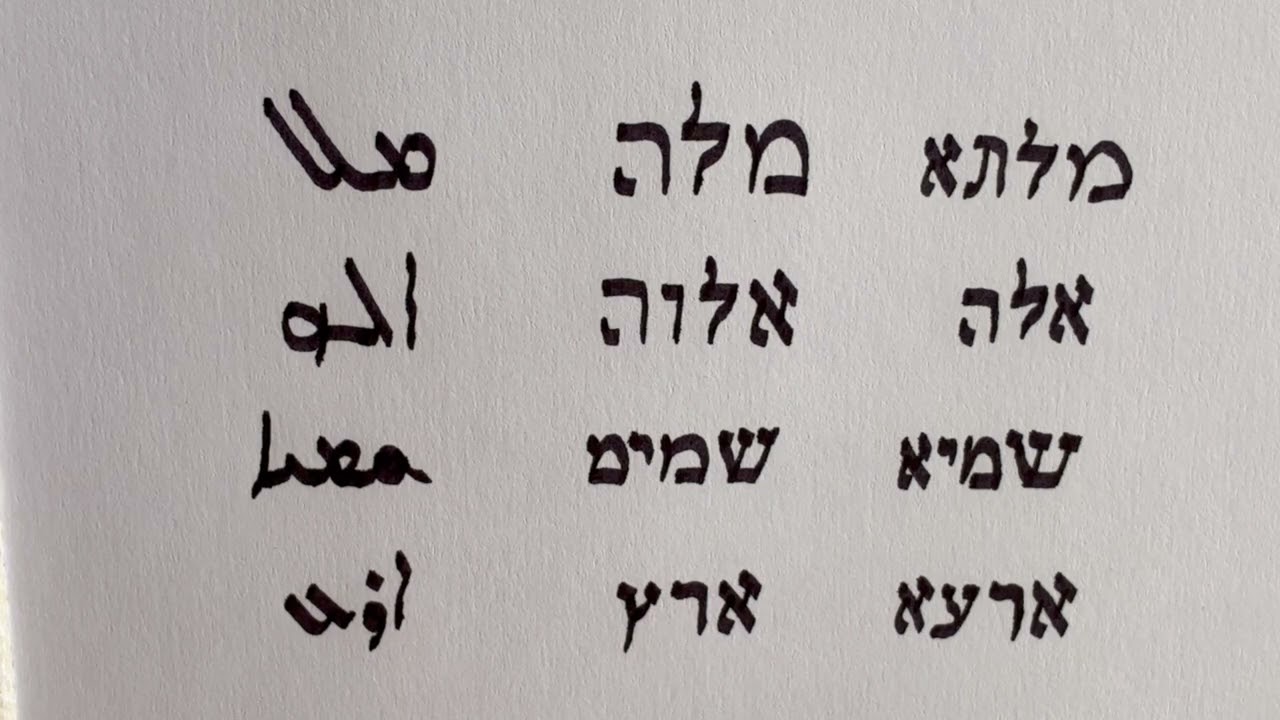 מלתא מלה
אלה אלוה ܐܠܗ
שמיא שמים ܫܡܝܐ
ארעא ארץ